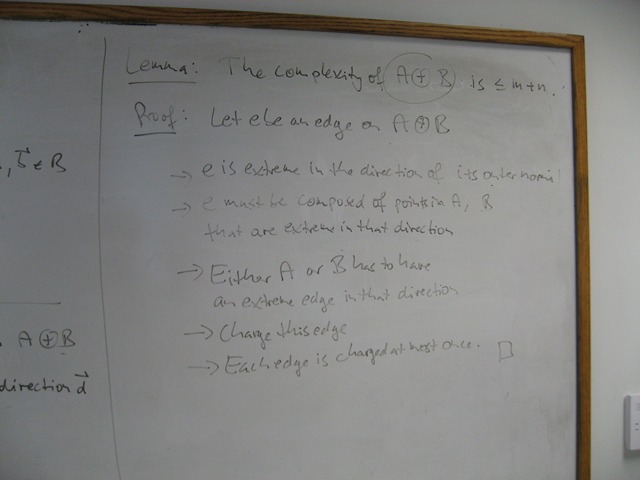 , b⃗ ∈ B
A ⊕ B
direction d⃗
Lemma: The complexity of A ⊕ B is ≤ m+n.
Proof: Let e be an edge on A ⊕ B
→ e is extreme in the direction of its outer normal
→ e must be composed of points in A, B
that are extreme in that direction
→ Either A or B has to have
an extreme edge in that direction
→ Charge this edge
→ Each edge is charged at most once. □